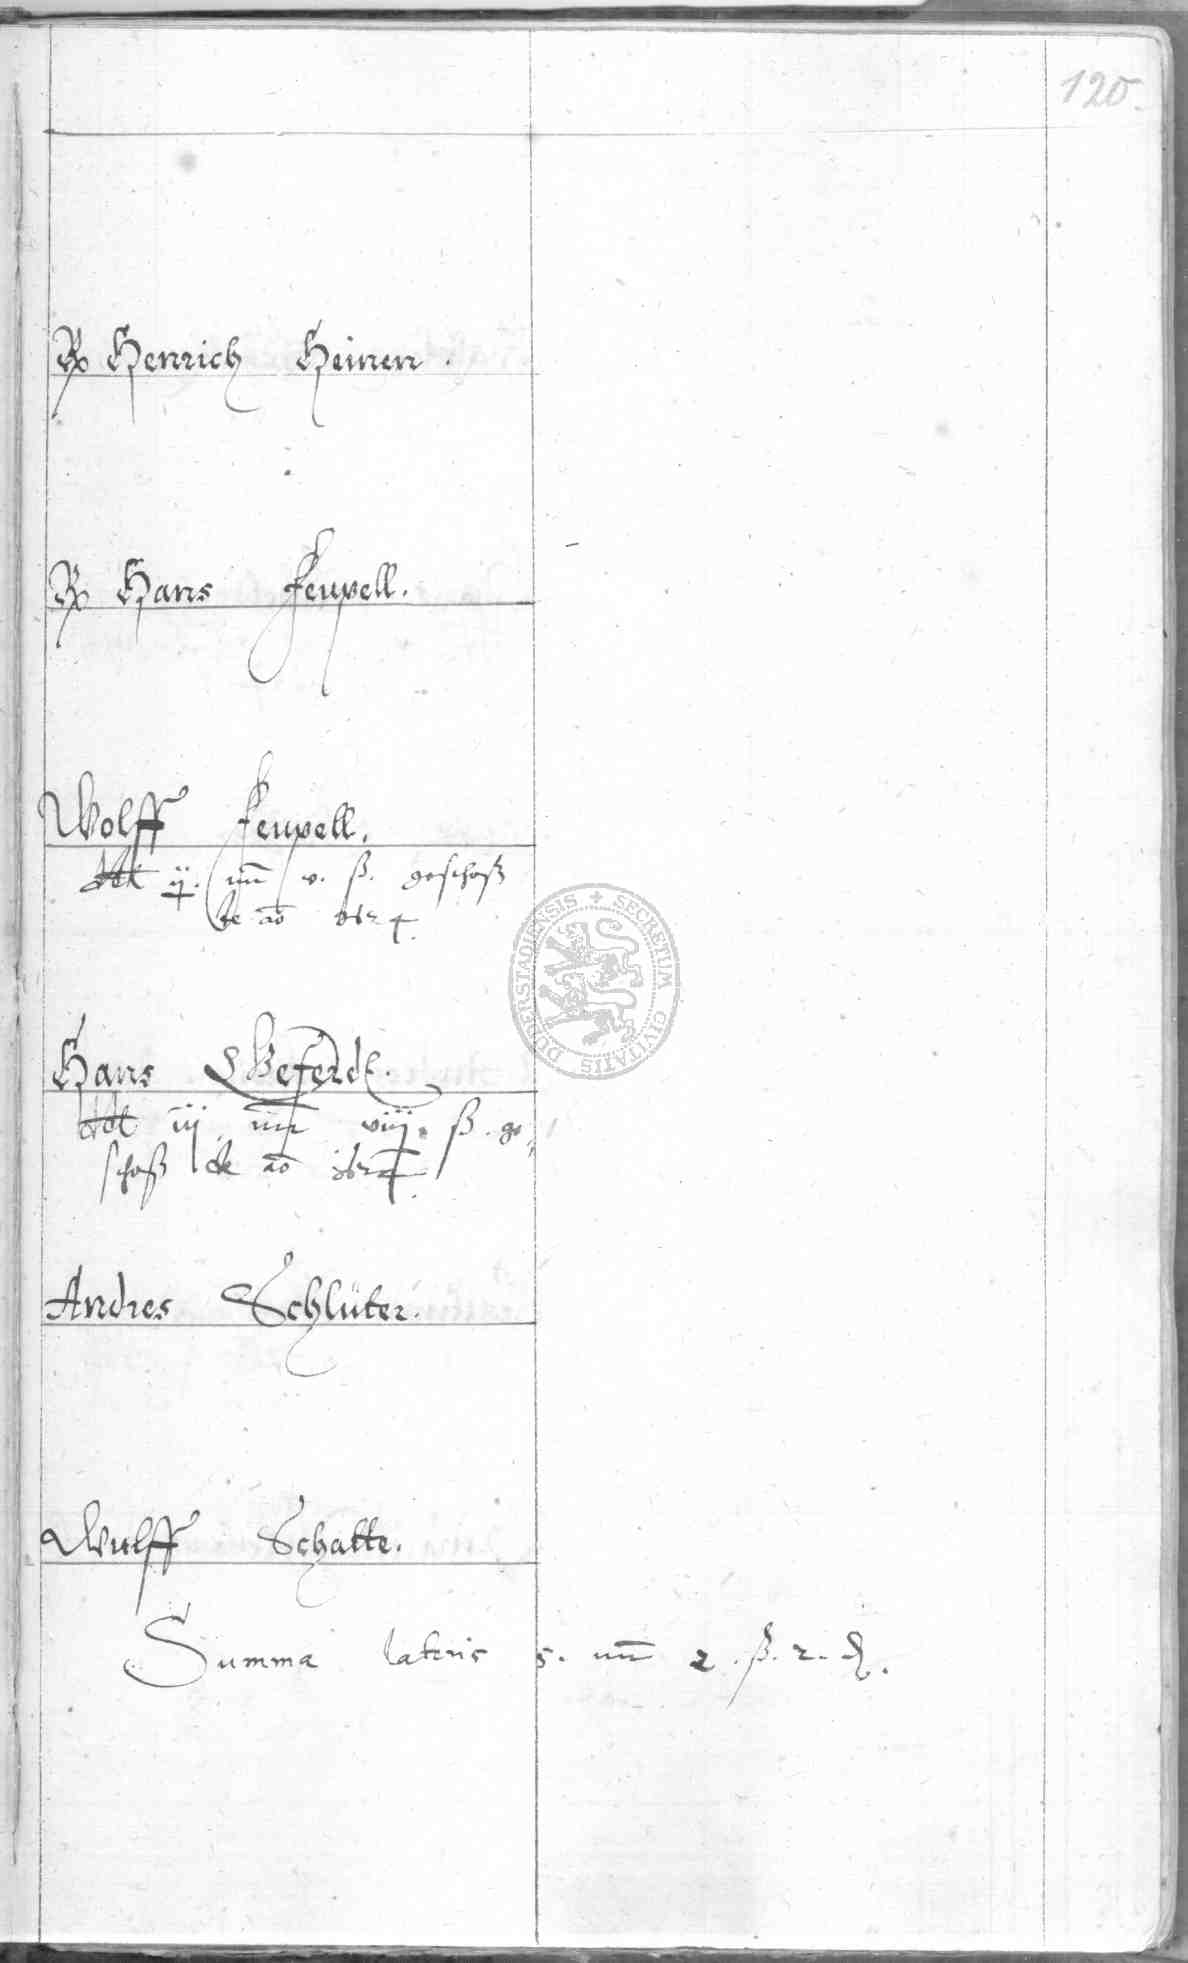 120.
Rx Henrich Heinen.
Rx Hans Feupell.
Wolff Feupell.
dedit ij. mr v. ß. geschoß
de ao 1624.
Hans
dedit iij mr viij. ß. ge„
schoß de ao 1624.
Andres Schlüter.
Wulff Schatte.
Summa lateris 5. mr 2. ß. 2. ₰.
SECRETUM CIVITATIS DUDERSTADIENSIS